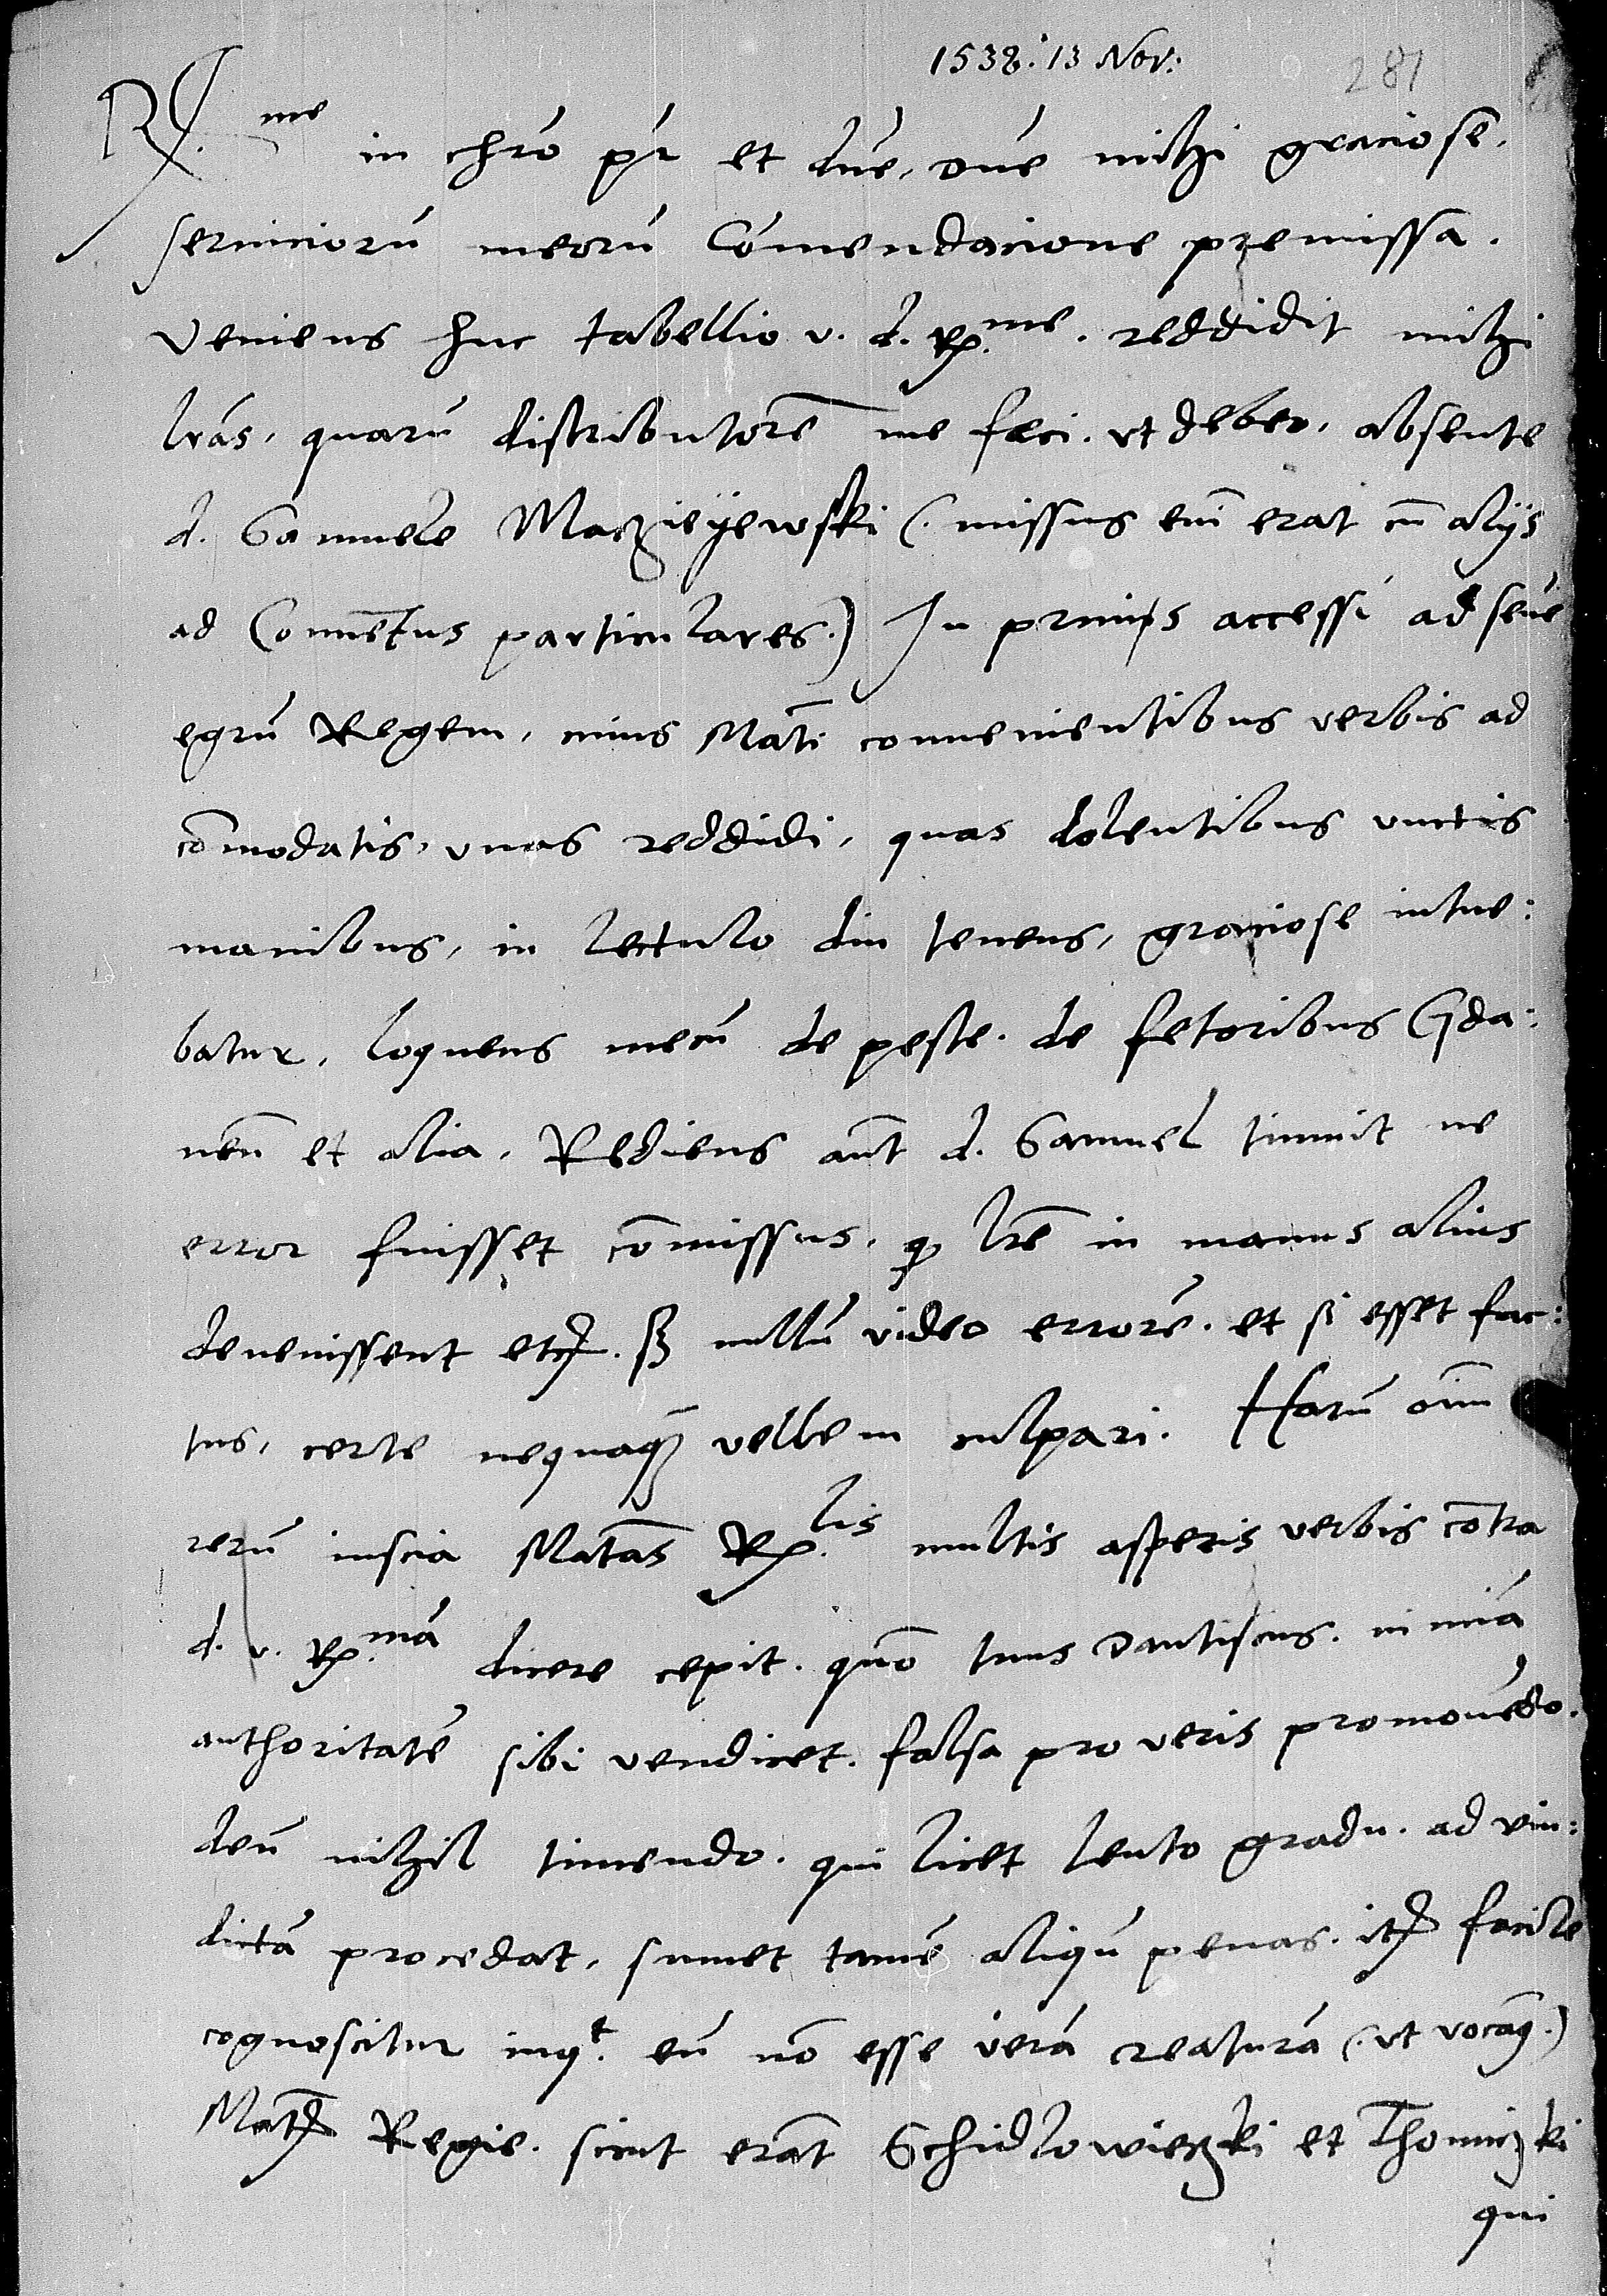 1538. 13 Nov:
281
R.me in chro pr et dne, dne mihi graciose.
serviciorū meorū Cōmendacione premissa.
Veniens huc tabellio v. d. R.me. reddidit mihi
lras, quarū distributorē me feci. ut debeo, absente
d. Samuele Maczieyewski (. missus eni erat cū alijs
ad Conuētus particulares.) In primis accessi ad seré
egrū Regem, cuius Mati conuenientibus verbis ad
cōmodatis, unas reddidi, quas dolentibus unctis
manibus, in lectulo diu tenens, graciose intue:
batur, loquens mecū de peste. de fetoribus Gda:
nen et alia. Rediens aut d. Samuel timuit ne
error fuisset cōmissus, q lre in manus alius
devenissent etc. sz nullū video errorē. et si esset fac:
tus, certe nequaq̄ vellem culpari. Harū oīm
rerū inscia Matas R.lis multis asperis verbis cōtra
d. v. R.mā dicere cepit. quō tuus Dantiscus. nimiā
authoritatē sibi vendicet. falsa pro veris promouēdo.
deū nihil timendo. qui licet lento gradu. ad vin:
dictā procedat, sumet tamē aliqū penas. itē facile
cognoscitur inqt. eū nō esse verā creaturā (. ut vocāt.)
Matis Regie. sicut erāt Schidlowieczki et Thomiczki
qui